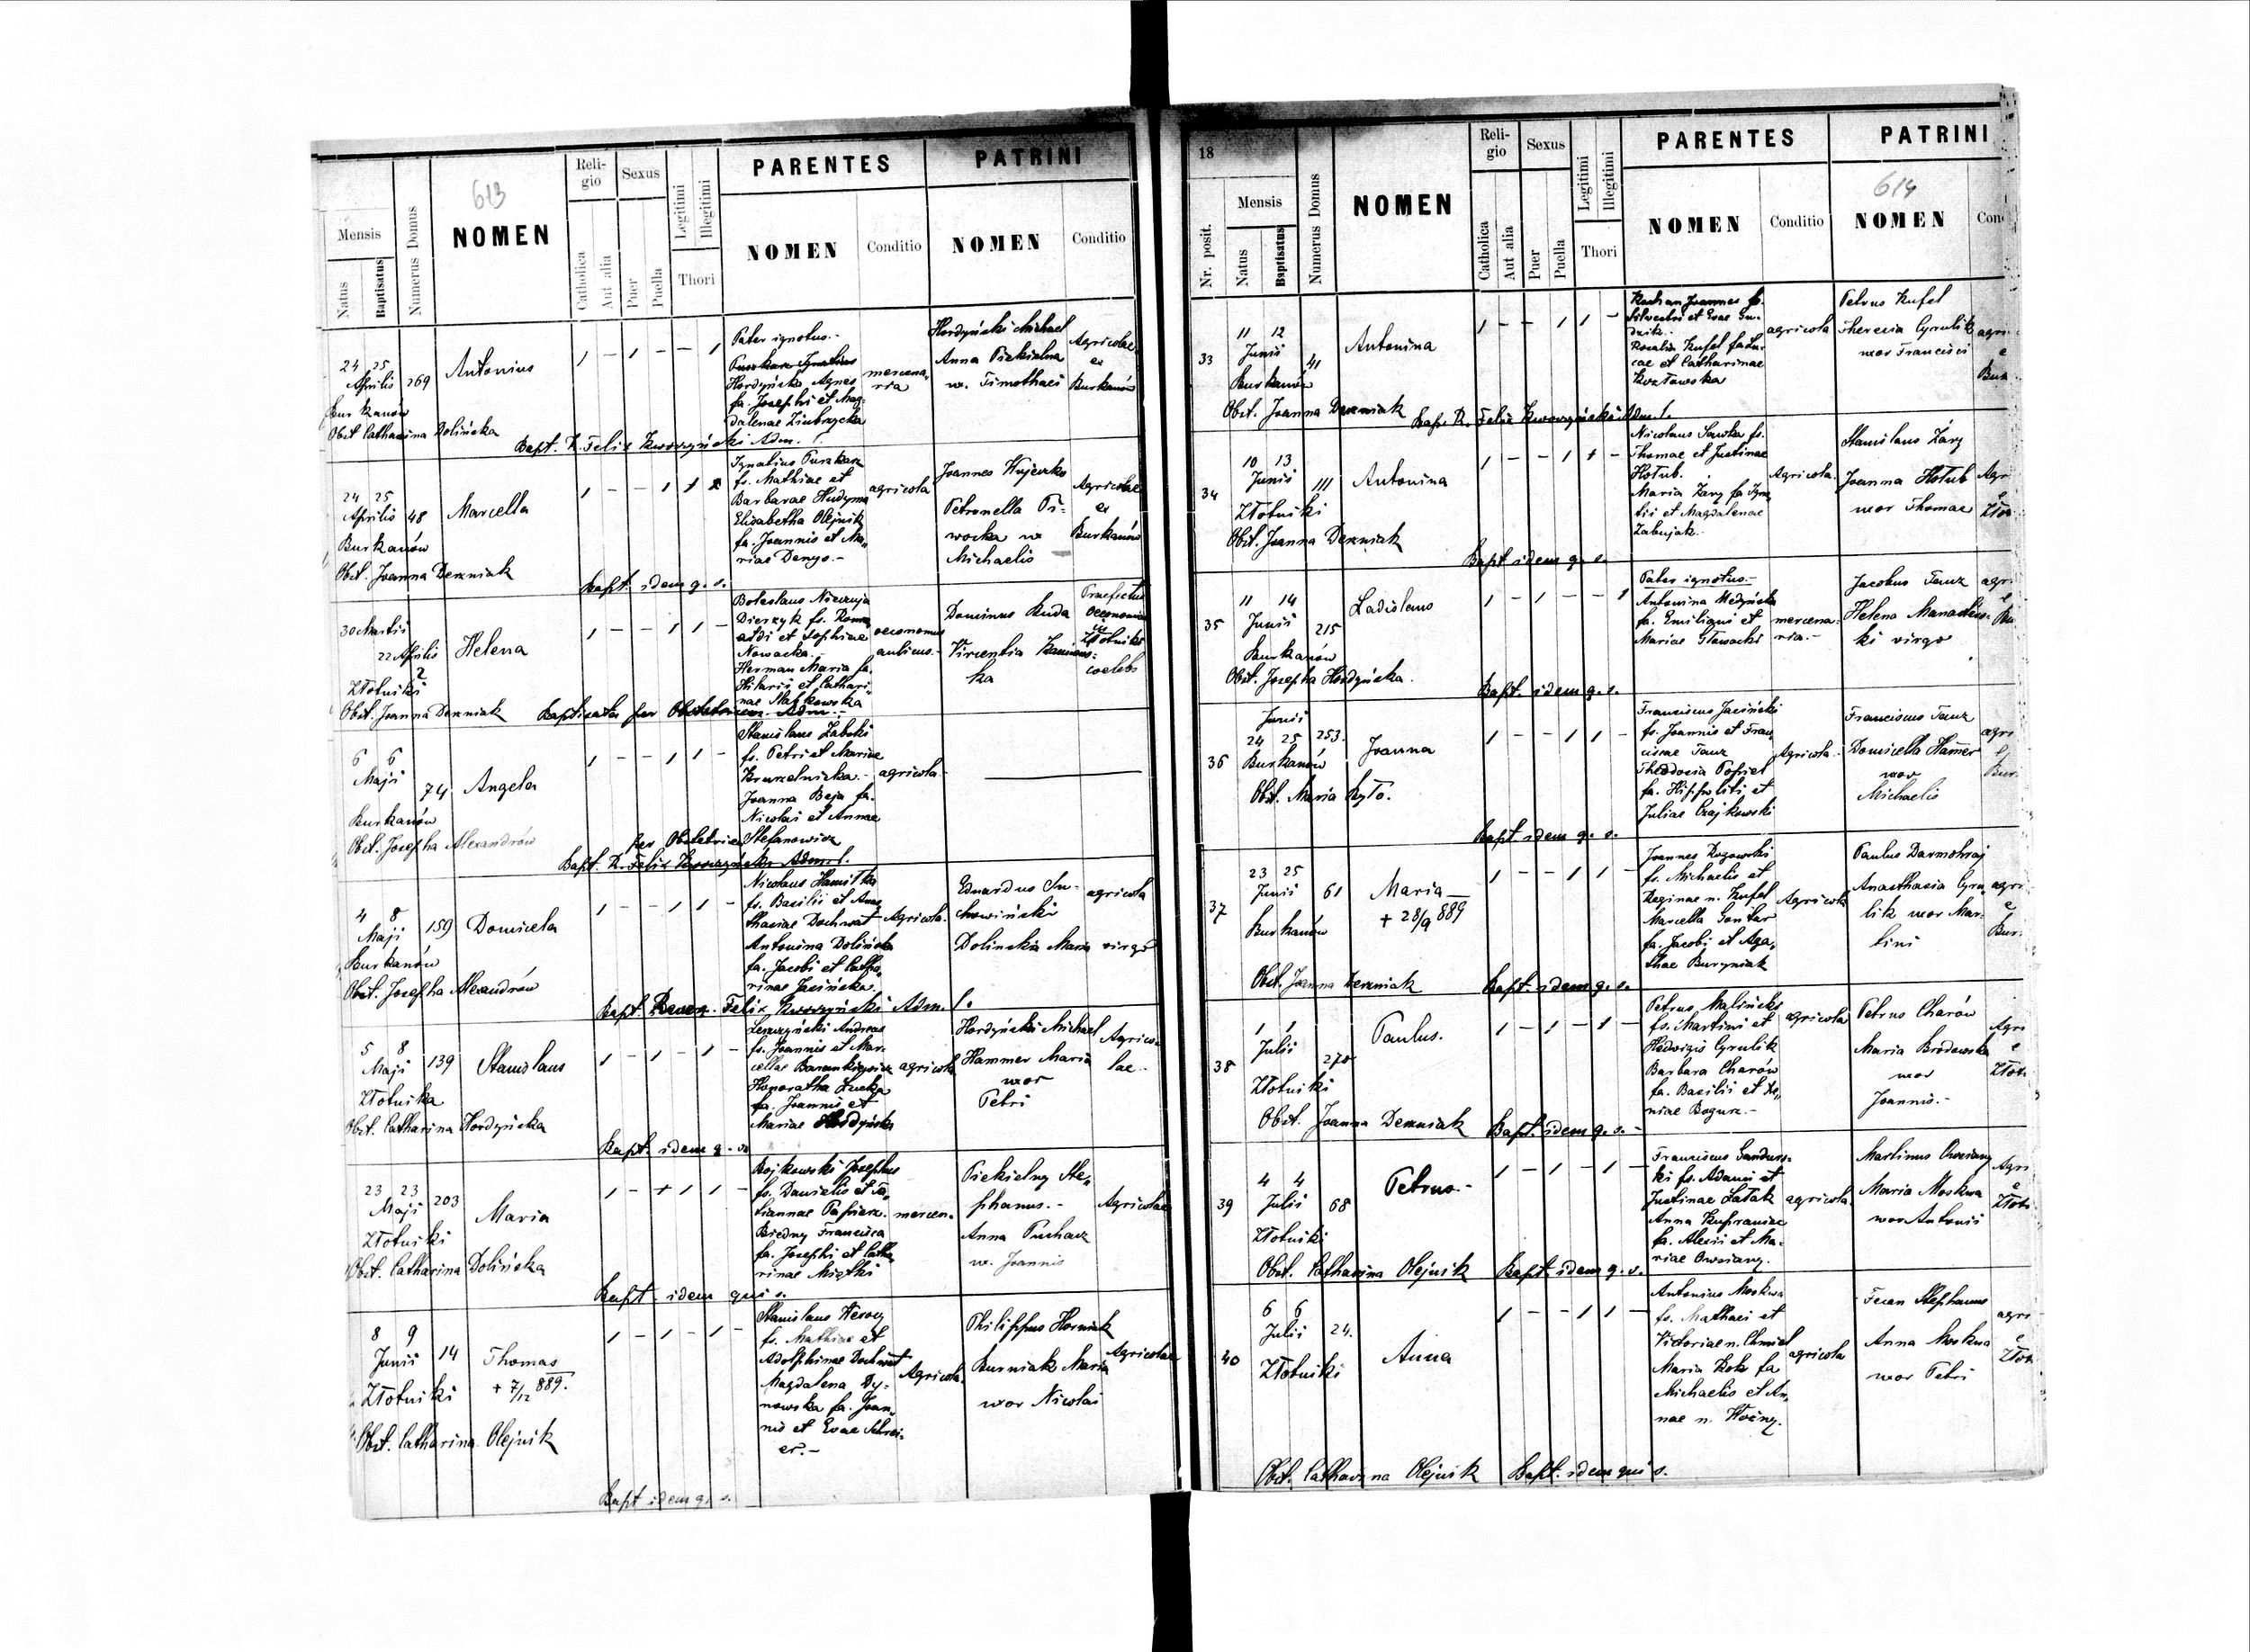 613
Mensis
Natus
Baptisatus
Numerus Domus
NOMEN
Reli-
gio
Catholica
Aut alia
Sexus
Puer
Puella
Legitimi
Illegitimi
Thori
PARENTES
NOMEN
Conditio
PATRINI
NOMEN
Conditio
24 25
Aprilis 269
Burkanów
Antonius
Pater ignotus.-
Hordyńska Agnes
fa. Josephi et Mag-
dalenae
mercena-
ria
Hordyński Michael
Anna Piekielna
w. Timothaei
Agricolae
ex
Burkanów
Obst. Catharina Dolińska
Bapt. R. Felix Adm.
24 25
Aprilis 48
Burkanów
Marcella
Ignatius Puszkarz
fs. Mathiae et
Barbarae Hudyma
Elisabetha Olejnik
fa. Joannis et Ma-
riae Denys.-
agricola
Joannes
Petronella Pi=
wocka w
Michaelis
Agricolae
ex
Burkanów
Obst. Joanna Derzniak
Bapt. idem q. s.
30 Martii
22 Aprilis
2
Złotniki
Helena
Boleslaus Nieczuja
Dierzyk fs. Romu
aldi et Sophiae
Nowacka.-
Herman Maria fa.
Hilarii et Cathari-
nae
oeconomus
aulicus.-
Dominus Ruda
Vincentia
ka
Praefectus
oeconomiae
in
Złotniki
coelebs
Obst. Joanna Derzniak
Baptisata per Obstetricem
6 6
Maji
74
Burkanów
Angela
Stanislaus Żabski
fs. Petri et Mariae
Kruszelnicka.-
Joanna Beja fa.
Nicolai et Annae
Stefanowicz
agricola
Obst. Josepha Alexandrów
per Obstetricem
Bapt. R. Felix Adm. l.
4 8
Maji 159
Burkanów
Domicela
Nicolaus Hamitka
fs. Basilii et Anas
thasiae Dochwat
Antonina Dolińska
fa. Jacobi et Catha-
rinae Jasińska
Agricola.
Eduardus Su-
chowiński
Dolinska Maria
agricola
virgo
Obst. Josepha Alexandrów
Bapt. Felix Adm. l.
5 8
Maji 139
Złotnika
Stanislaus
Leszczyński Andreas
fs. Joannis et Mar-
cellae
Honoratha
fa. Joannis et
Mariae Hordyńska
agricola
Hordyński Michael
Hammer Maria
uxor
Petri
Agrico-
lae.-
Obst. Catharina Hordyńska
Bapt. idem q. s.
23 23
Maji 203
Złotniki
Maria
Bojkowski Josephus
fs. Danielis et Ta-
tiannae
Biedny Francisca
fa. Josephi et Catha-
rinae Miętki
mercen.
Piekielny Ste-
phanus.-
Anna Puchacz
w. Joannis
Agricolae
Obst. Catharina Dolińska
Bapt. idem qui s.
8 9
Junii 14
Złotniki
Thomas
+ 7/12 889.
Stanislaus
fs. Mathiae et
Adolphinae Dochwat
Magdalena Dy-
nowska fa. Joan-
nis et Evae Schrei-
er.-
Agricola.
Philippus Horniak
Burniak Maria
uxor Nicolai
Agricolae
Obst. Catharina Olejnik
Bapt idem q. s.
18
614
Nr. posit.
Mensis
Natus
Baptisatus
Numerus Domus
NOMEN
Reli-
gio
Catholica
Aut alia
Sexus
Puer
Puella
Legitimi
Illegitimi
Thori
PARENTES
NOMEN
Conditio
PATRINI
NOMEN
33
11 12
Junii
41
Burkanów
Antonina
Joannes fs.
Silvestri et Evae
Rosalia Kufel fa Lu-
cae et Catharinae
Kozławska
agricola
Petrus Kufel
Theresia Cyrulik
uxor Francisci
agri
Obst. Joanna Derzniak
Bap. R. Felix Adm. l.
34
10 13
Junii
111
Złotniki
Antonina
Nicolaus Sawka fs.
Thomae et Justinae
Hołub.
Maria Żary fa Igna-
tii et Magdalenae
Zabujak.
Agricola.
Stanislaus Żary
Joanna Hołub
uxor Thomae
Agr
Obst. Joanna Derzniak
Bapt idem q. s.
35
11 14
Junii
215
Burkanów
Ladislaus
Pater ignotus.-
Antonina Medyńska
fa. Emiliani et
Mariae Głowacki
mercena-
ria.-
Jacobus Tanz
Helena
ki virgo
agri
Obst. Josepha Hordyńska.
Bapt. idem q. s.
36
Junii
24 25 253.
Burkanów
Joanna
Franciscus Jasiński
fs. Joannis et Fran-
ciscae Tanz
Theodosia Popiel
fa. Hippoliti et
Juliae Czajkowski
Agricola.
Franciscus Tanz
Domicella Hammer
uxor
Michaelis
agri
Obst. Maria Łyto.
Bapt. idem q. s.
37
23 25
Junii 61
Burkanów
Maria
+ 28/9 889
Joannes Rozowski
fs. Michaelis et
Reginae n. Kufel
Marcella Gontar
fa. Jacobi et Aga-
thae Buryniak
Agricola
Paulus Darmohraj
Anasthasia Cyru
lik uxor Mar-
tini
agri
Obst. Joanna Derzniak
Bapt. idem q. s.
38
1 1
Julii
270
Złotniki
Paulus.
Petrus Maliński
fs. Martini et
Hedwigis Cyrulik
Barbara Charów
fa. Basilii et Xe-
niae Bogusz.-
agricola
Petrus Charów
Maria Brodowska
uxor
Joannis.-
Agri
Obst. Joanna Derzniak
Bapt. idem q. s.-
39
4 4
Julii 68
Złotniki
Petrus.-
Franciscus Gandurs-
ki fs. Adami et
Justinae Łatak
Anna
fa. Alexii et Ma-
riae Owsiany.
agricola
Martinus Owsiany
Maria Moskwa
uxor Antonii
Agri
Obst. Catharina Olejnik
Bapt. idem q. s.
40
6 6
Julii 24.
Złotniki
Anna
Antonius Moskwa
fs. Mathaei et
Victoriae n. Chmiel
Maria Kok fa
Michaelis et An-
nae n. Woźny.
agricola
Stephanus
Anna Moskwa
uxor Petri
agri
Obst. Catharina Olejnik
Bapt. idem qui s.